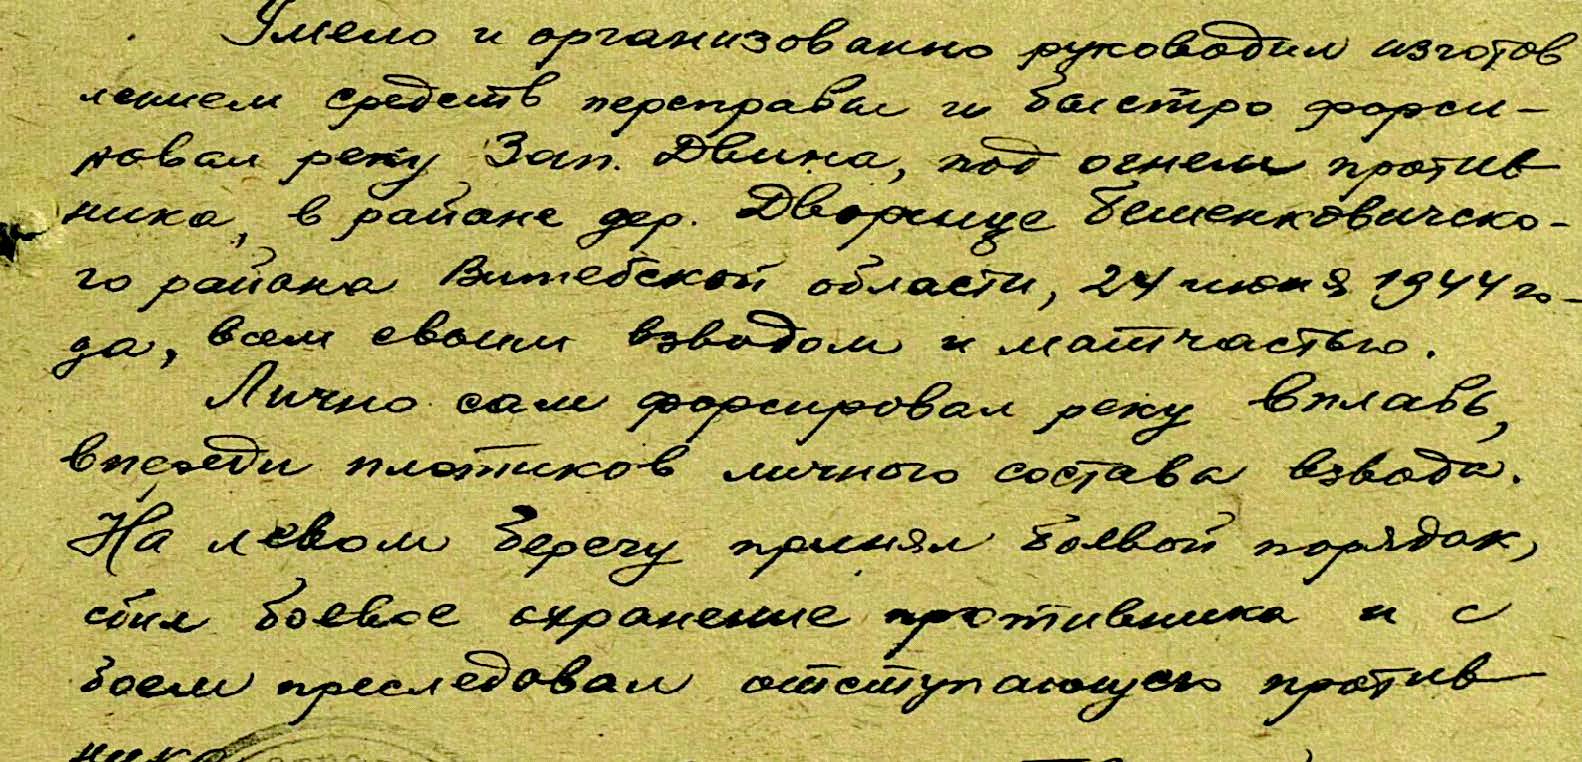 Умело и организованно руководил изготов
лением средств переправы и быстро форси-
ровал реку Зап. Двина, под огнем против
ника, в районе дер. Дворище Бешенковичско-
го района Витебской области, 24 июня 1944 го-
да, всем своим взводом и матчастью.
Лично сам форсировал реку вплавь,
впереди плотиков личного состава взвода.
На левом берегу принял боевой порядок,
сбил боевое охранение противника и с
боем преследовал отступающую против
ника